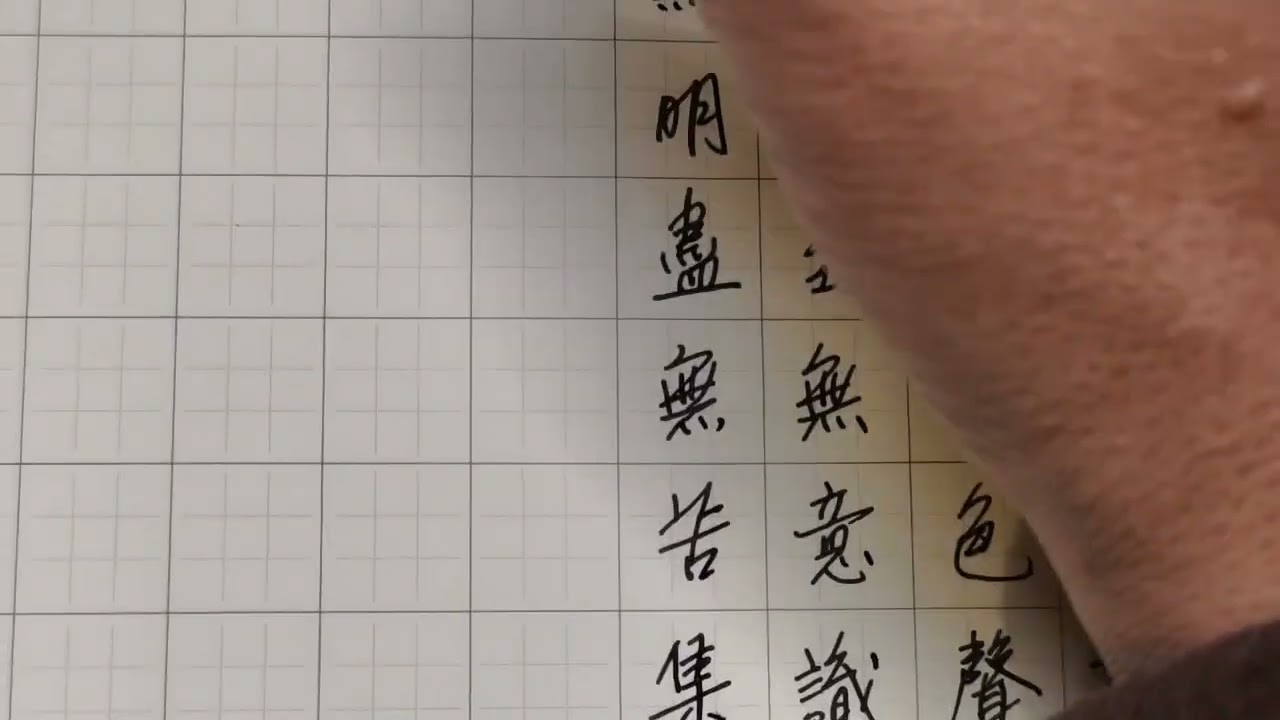 色聲
無意識
明盡無苦集